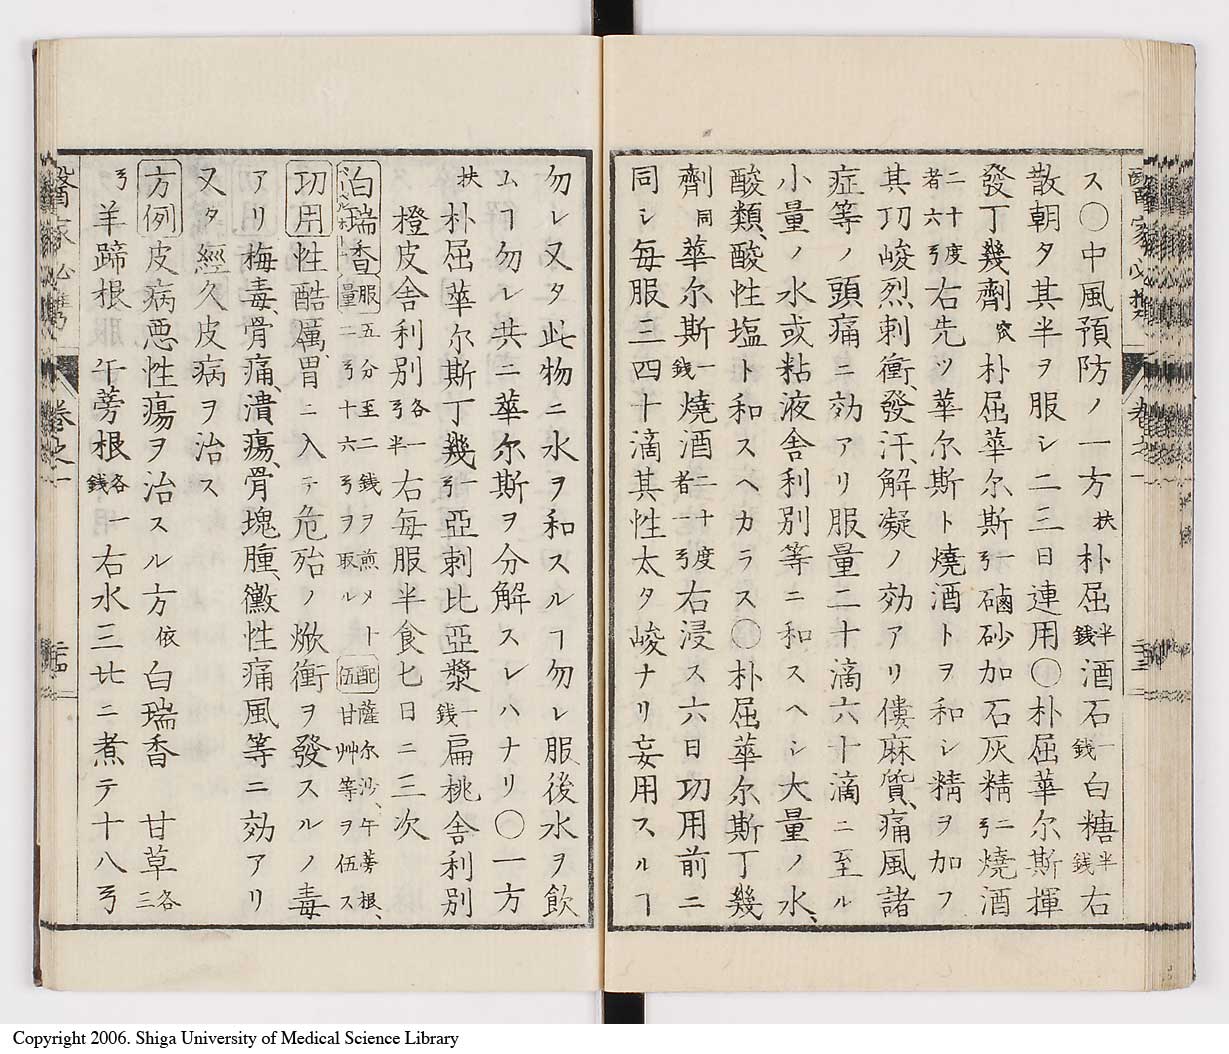 ス〇中風預防ノ一方扶朴屈半銭酒石一銭白糖半銭右
散朝タ其半ヲ服シ二三日連用〇朴屈華尓斯揮
發丁幾劑依朴屈華尓斯一弓磠砂加石灰精二弓燒酒
二十度者六弓右先ツ華尓斯ト燒酒トヲ和シ精ヲ加フ
其功峻烈、刺衝、發汗、解凝ノ効アリ僂麻質、痛風諸
症等ノ頭痛ニ効アリ服量二十滴六十滴ニ至ル
小量ノ水或粘液舎利別等ニ和スヘシ大量ノ水、
酸類、酸性塩ト和スヘカラス〇朴屈華尓斯丁幾
劑同華尓斯一銭燒酒二十度者一弓右浸ス六日功用前ニ
同シ毎服三四十滴其性太タ峻ナリ妄用スルヿ
勿レ又タ此物ニ水ヲ和スルヿ勿レ服後水ヲ飲
ムヿ勿レ共ニ華尓斯ヲ分解スレハナリ〇一方
扶朴屈華尓斯丁幾一弓亞剌比亞漿一銭扁桃舎利別
橙皮舎利別各一弓半右毎服半食匕日二三次
白瑞香服量五分至二銭ヲ煎メ一弓二十六弓ヲ取ル配伍薩尓沙、午蒡根、甘艸等ヲ伍ス
功用性酷厲、胃ニ入テ危殆ノ焮衝ヲ發スルノ毒
アリ梅毒、骨痛、潰瘍、骨塊腫、黴性痛風等ニ効アリ
又タ經久皮病ヲ治ス
方例皮病悪性瘍ヲ治スル方依白瑞香 甘草各三
弓羊蹄根 午蒡根各一銭右水三卄ニ煮テ十八弓
醫家必携
卷之一